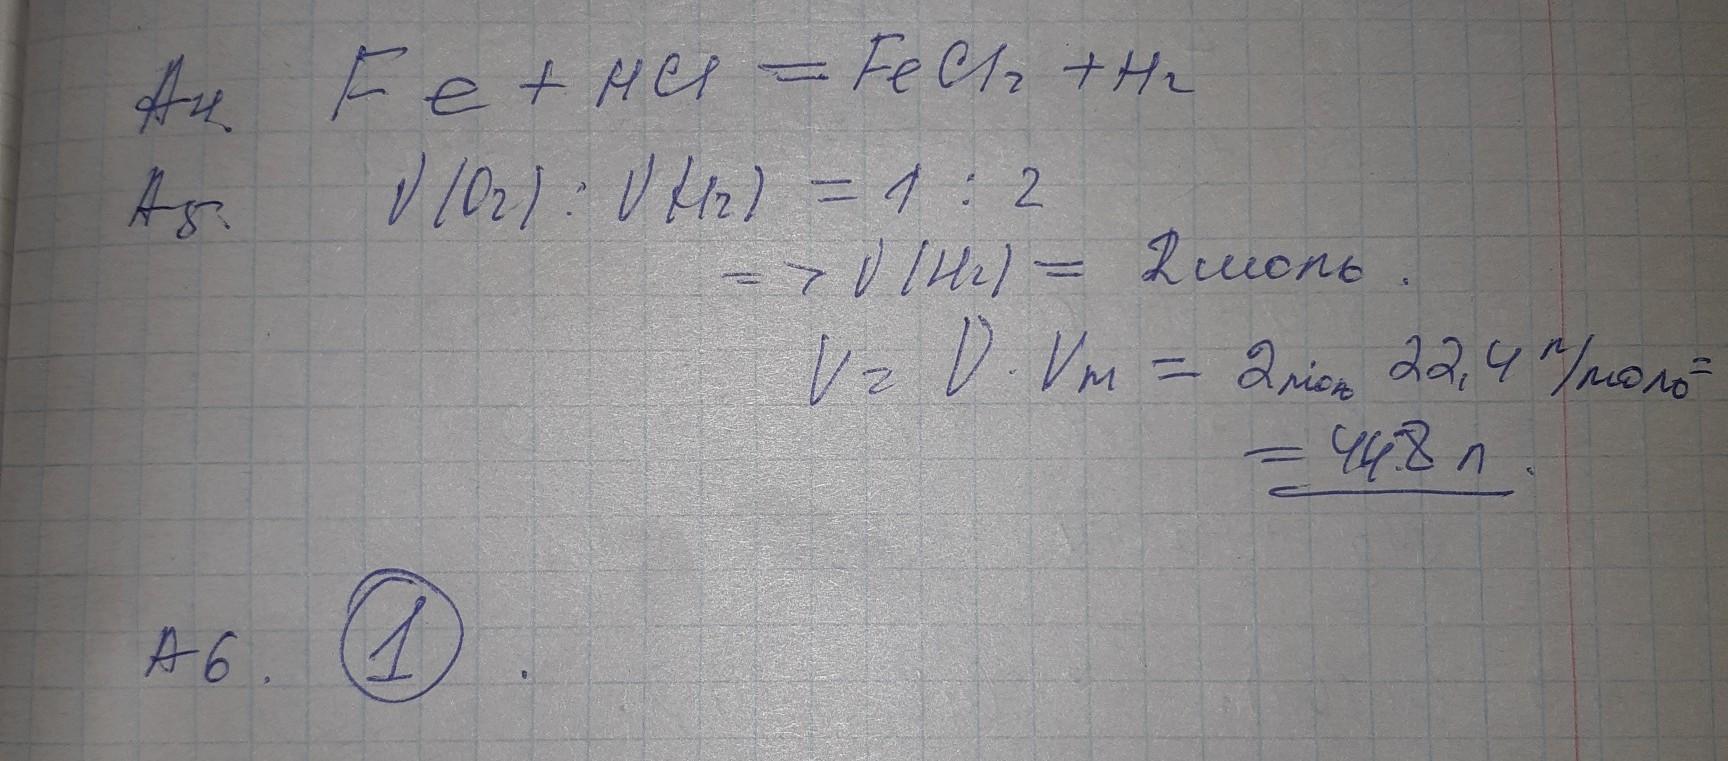 А4. Fe + HCl = FeCl₂ + H₂
А5. ν(O₂) : ν(H₂) = 1 : 2
=> ν(H₂) = 2 моль.
V = ν · Vm = 2 моль 22,4 л/моль =
= 44.8 л.
А6. 1 .